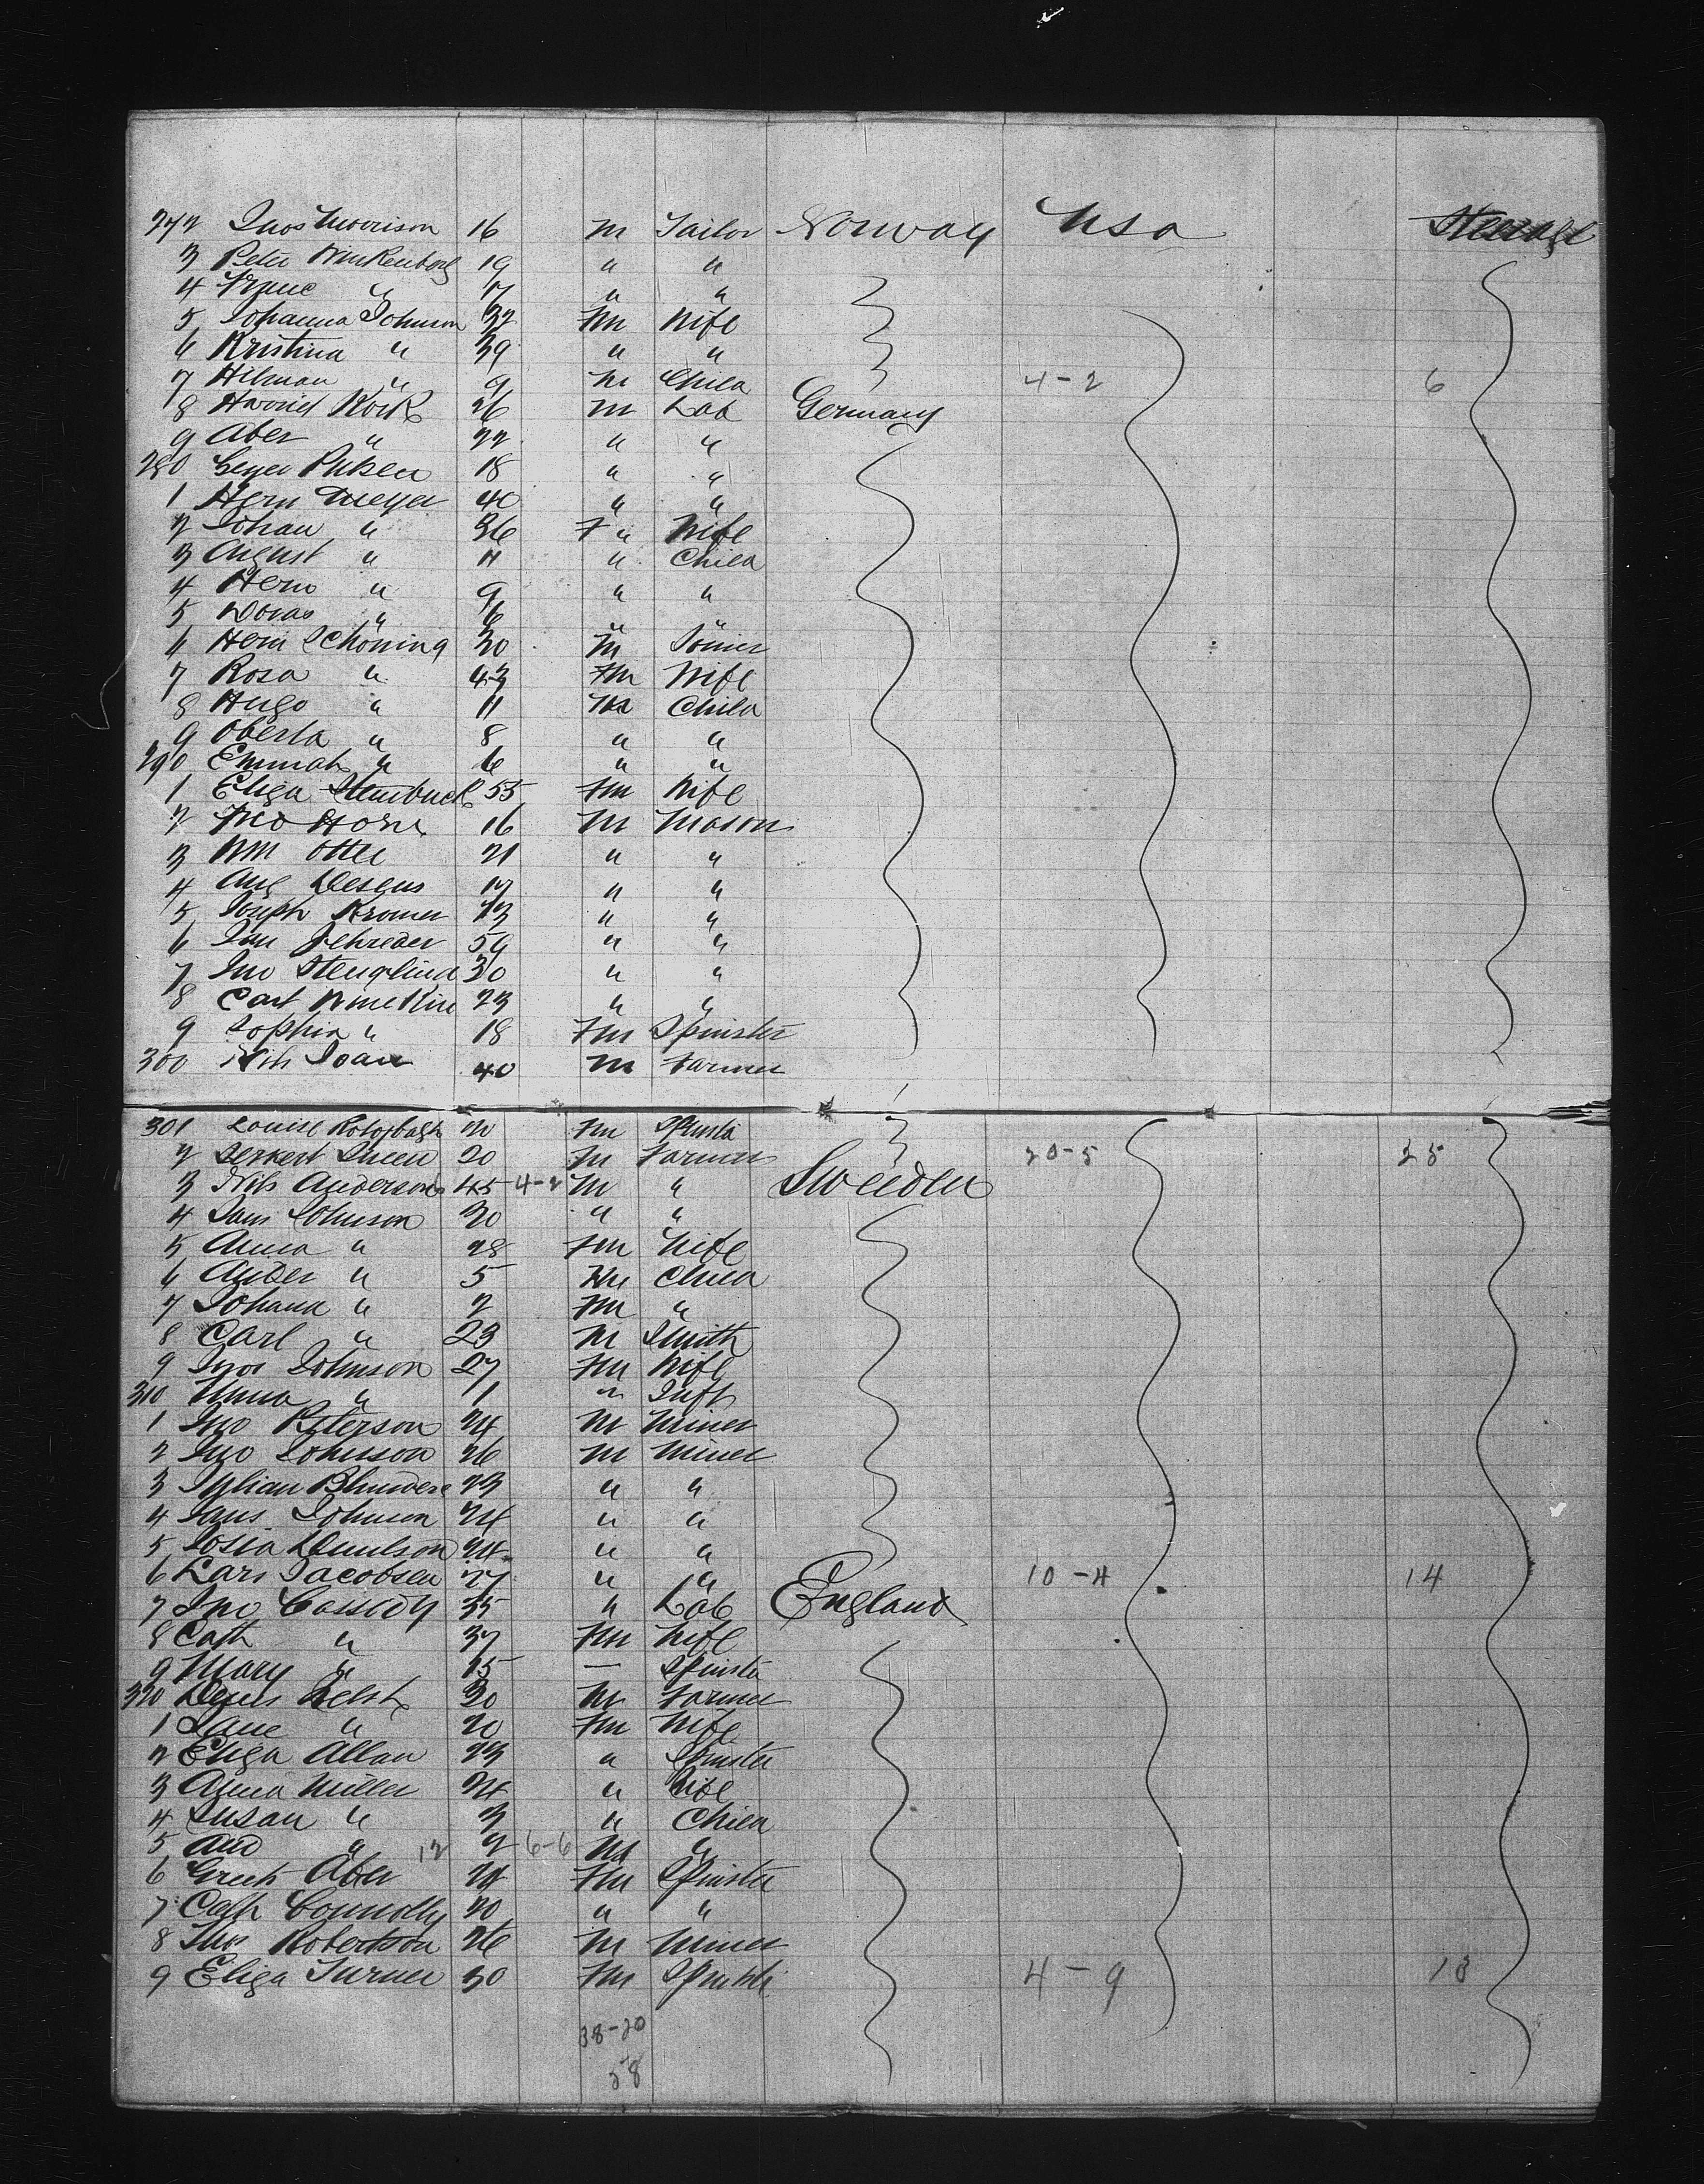 272 Thos Morrison 16 m Tailor Norway USA Steerage
3 Peter Winkenborg 19 " "
4 " 17 " "
5 Johanna Johnson 32 Fm Wife
6 Kristina " 39 " "
7 Hilman " 9 m Child 4-2 6
8 Kock 26 m Lab Germany
9 Aber " 22 " "
280 18 " "
1 Hern Meyer 40 " "
2 Johan " 36 F " Wife
3 August " 11 " Child
4 Hern " 9 " "
5 Doras " 6 " "
6 Hern Schoning 30 m Joiner
7 Rosa " 43 Fm Wife
8 Hugo " 11 m Child
9 Oberta " 8 " "
290 Emmah " 6 " "
1 Eliza Steinback 55 Fm Wife
2 Horn 16 m Mason
3 Wm Otte 21 " "
4 Aug 17 " "
5 Joseph Kromer 23 " "
6 Schreder 59 " "
7 Jno Stenglind 30 " "
8 Carl 23 " "
9 Sophia " 18 Fm Spinster
300 40 m Farmer
301 Louise 20 Fm Spinste
2 20 m Farmer 20-5 25
3 Nils Anderson 45 4-2 m " Sweeden
4 Jans Johnson 30 " "
5 Anna " 28 Fm Wife
6 Ander " 5 m Child
7 Johana " 2 Fm "
8 Carl " 23 m Smith
9 Johnson 27 Fm Wife
310 Anna " 1 " Inft
1 Jno Peterson 24 m Miner
2 Jno Johnson 26 m Miner
3 23 " "
4 Jans Johnson 24 " "
5 24 " "
6 Lars Jacobsen 27 " " 10-4 14
7 Jno Cassidy 35 " Lab England
8 Cath " 37 Fm Wife
9 Mary " 15 — Spinste
320 Welsh 30 m Farmer
1 Jane " 20 Fm Wife
2 Eliza Allan 23 " Spinster
3 Anna Miller 24 " Wife
4 Susan " 3 " Child
5 And " 12 2 6-6 m "
6 Aber 24 Fm Spinster
7 Cath Connolly 20 " "
8 Thos Robertson 26 m Miner
9 Eliza Turner 30 Fm Spinste 4-9 13
38-20
58